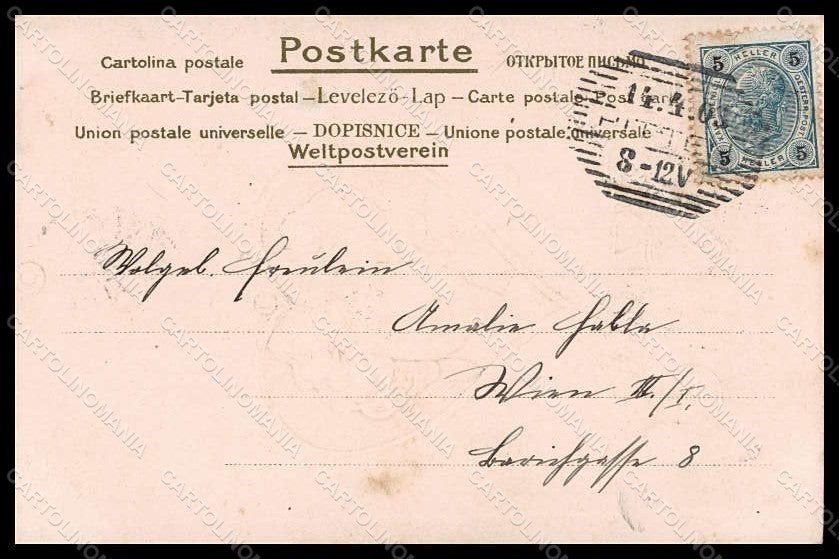 Postkarte
Cartolina postale ОТКРЫТОЕ ПИСЬМО
Briefkaart-Tarjeta postal – Levelező-Lap – Carte postale Post card
Union postale universelle – DOPISNICE – Unione postale universale
Weltpostverein
5 HELLER 5
OESTERR.POST.
5 HELLER 5
14.4.03
8-12V
Wolgeb. Freulein
Amalie Habla
Wien III./1.
Barichgasse 8
CARTOLINOMANIA